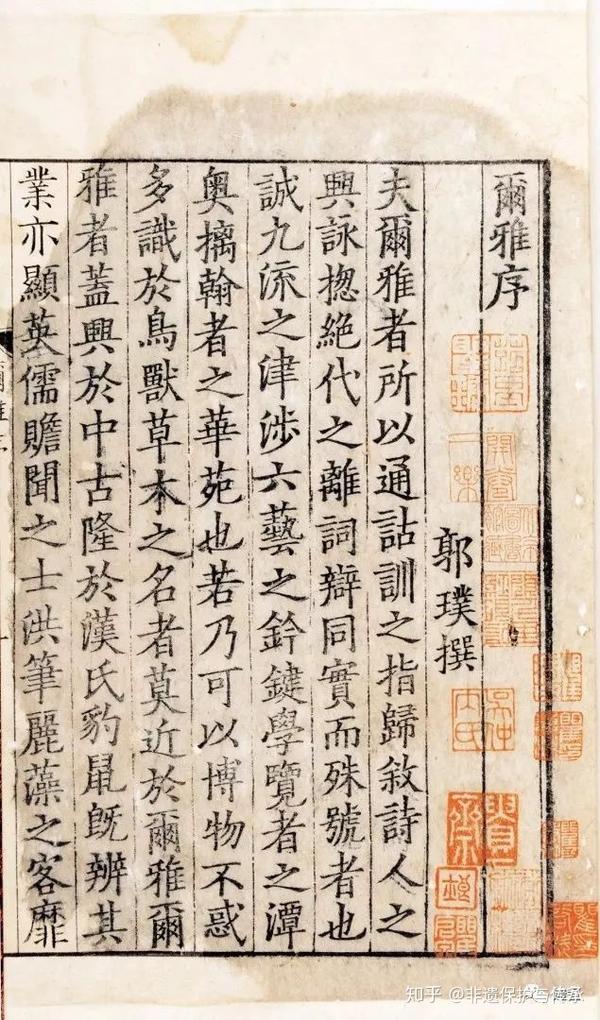 爾雅序
郭璞撰
夫爾雅者所以通詁訓之指歸敘詩人之
興詠揔絶代之離詞辯同實而殊號者也
誠九流之津涉六藝之鈐鍵學覽者之潭
奥摛翰者之華苑也若乃可以博物不惑
多識於鳥獸草木之名者莫近於爾雅爾
雅者蓋興於中古隆於漢氏豹鼠旣辨其
業亦顯英儒贍聞之士洪筆麗藻之客靡
知乎 @非遗保护与传承